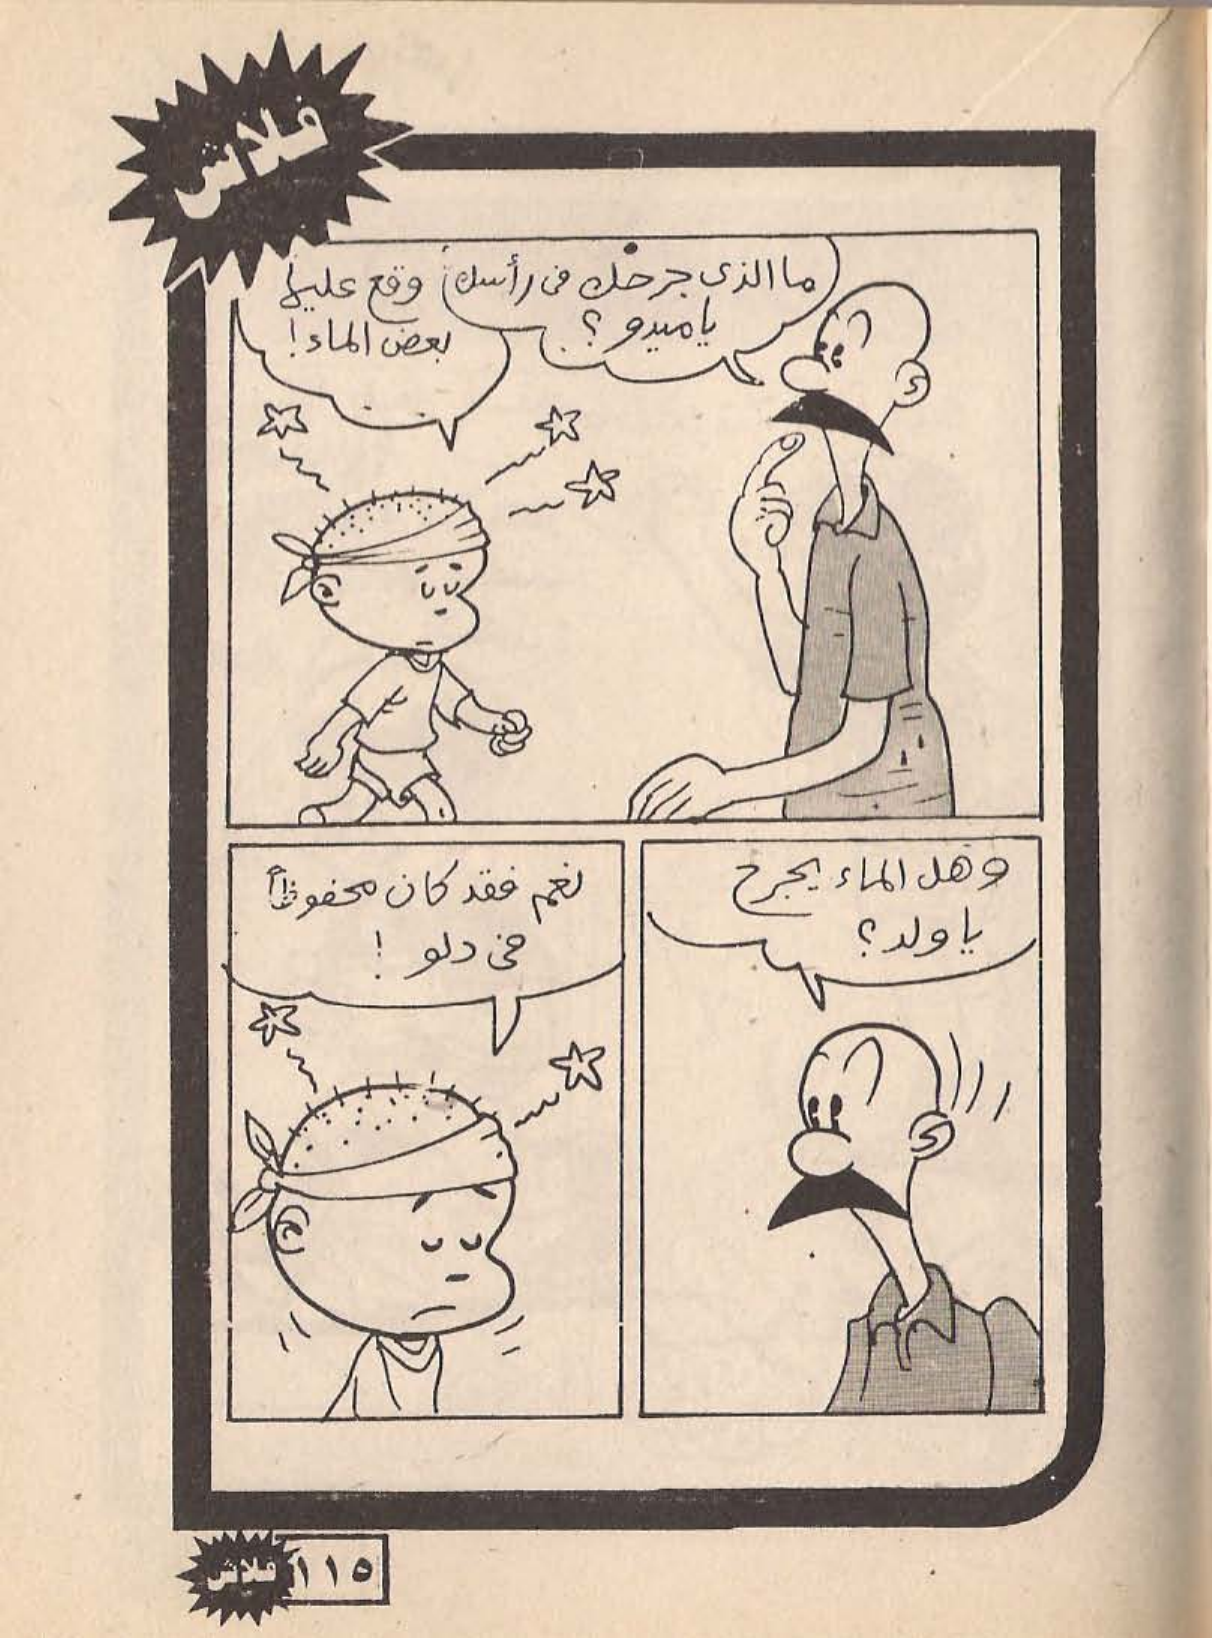 فلاش
ما الذى جرحك فى رأسك
يا ميدو ؟
وقع عليها
بعض الماء !
وهل الماء يجرح
يا ولد ؟
نعم فقد كان محفوظاً
فى دلو !
فلاش ١١٥